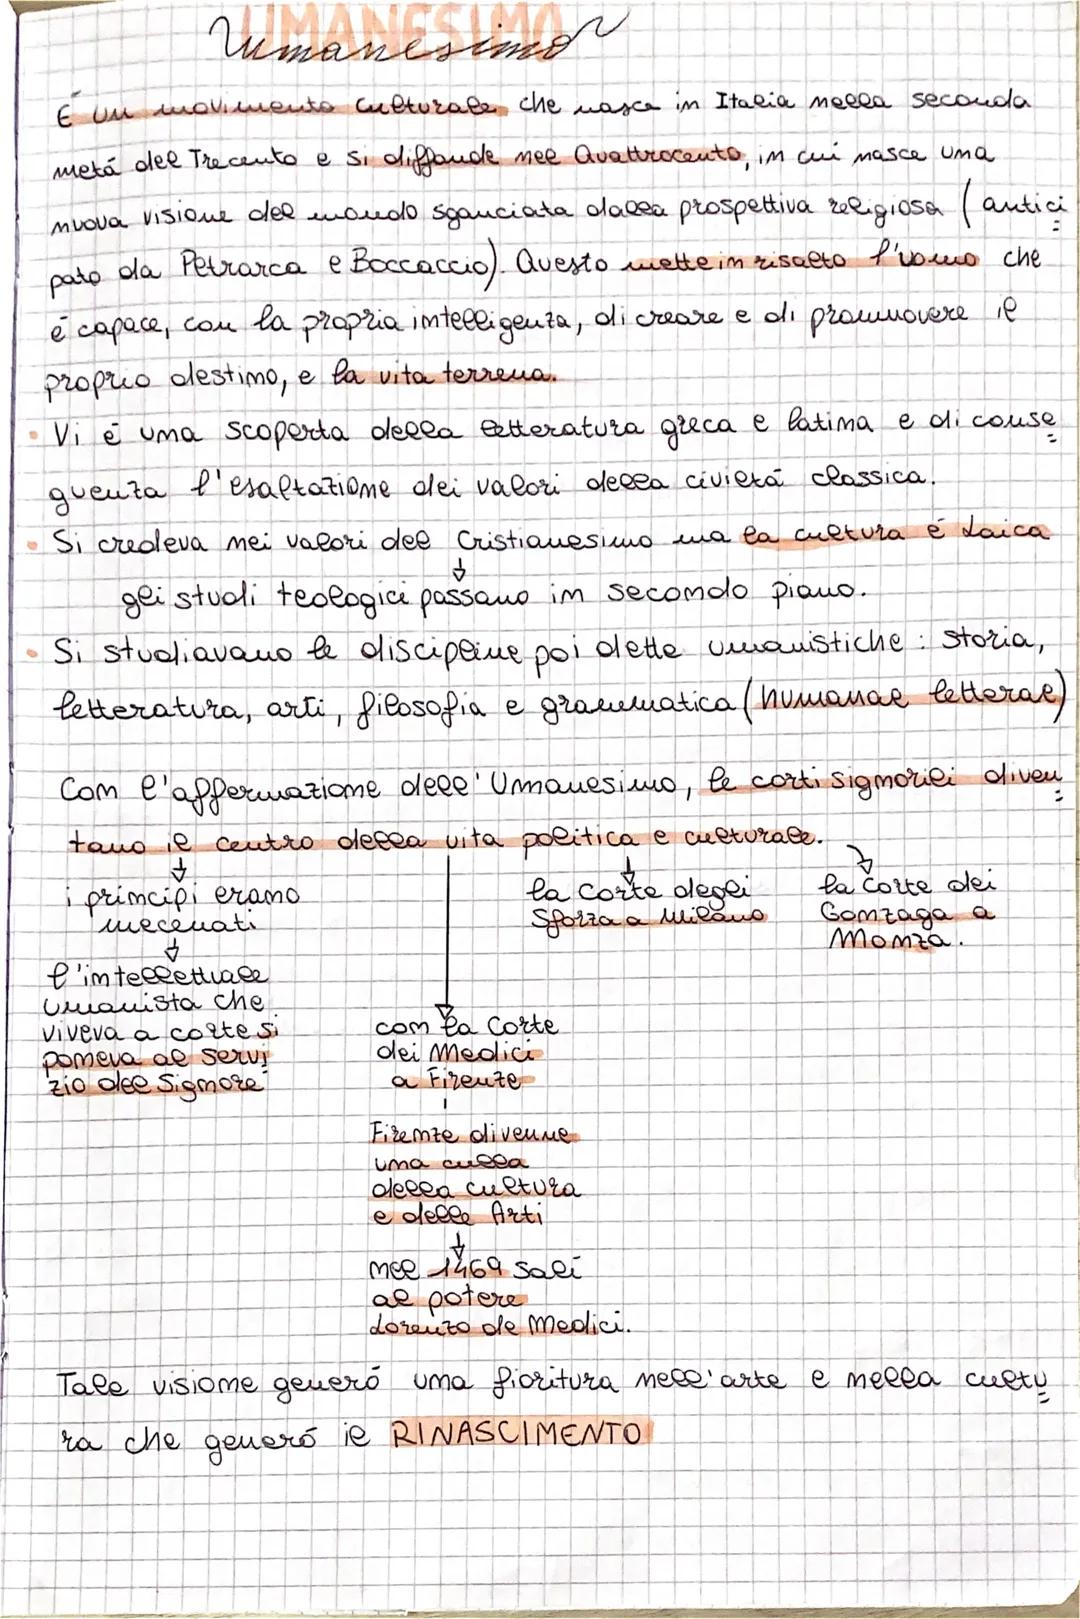 UMANESIMO
Umanesimo
É un movimento culturale che nasce in Italia nella seconda
metá del Trecento e si diffonde nel Quattrocento, in cui nasce una
nuova visione del mondo sganciata dalla prospettiva religiosa (antici
pato da Petrarca e Boccaccio). Questo mette in risalto l'uomo che
é capace, con la propria intelligenza, di creare e di promuovere il
proprio destino, e la vita terrena.
• Vi é una scoperta della letteratura greca e latina e di conse
guenza l'esaltazione dei valori della civiltá classica.
• Si credeva nei valori del Cristianesimo ma la cultura é laica
↓
gli studi teologici passano in secondo piano.
• Si studiavano le discipline poi dette umanistiche: storia,
letteratura, arti, filosofia e grammatica (humanae letterae)
Con l'affermazione dell'Umanesimo, le corti signorili diven
tano il centro della vita politica e culturale.
↓
i principi erano
mecenati
↓
l'intellettuale
umanista che
viveva a corte si
poneva al servi
zio del Signore
con la Corte
dei Medici
a Firenze
Firenze divenne
una culla
della cultura
e delle Arti
↓
nel 1469 salí
al potere
Lorenzo de Medici.
la Corte degli
Sforza a Milano
la Corte dei
Gonzaga a
Monza.
Tale visione generó una fioritura nell'arte e nella cultu
ra che generó il RINASCIMENTO